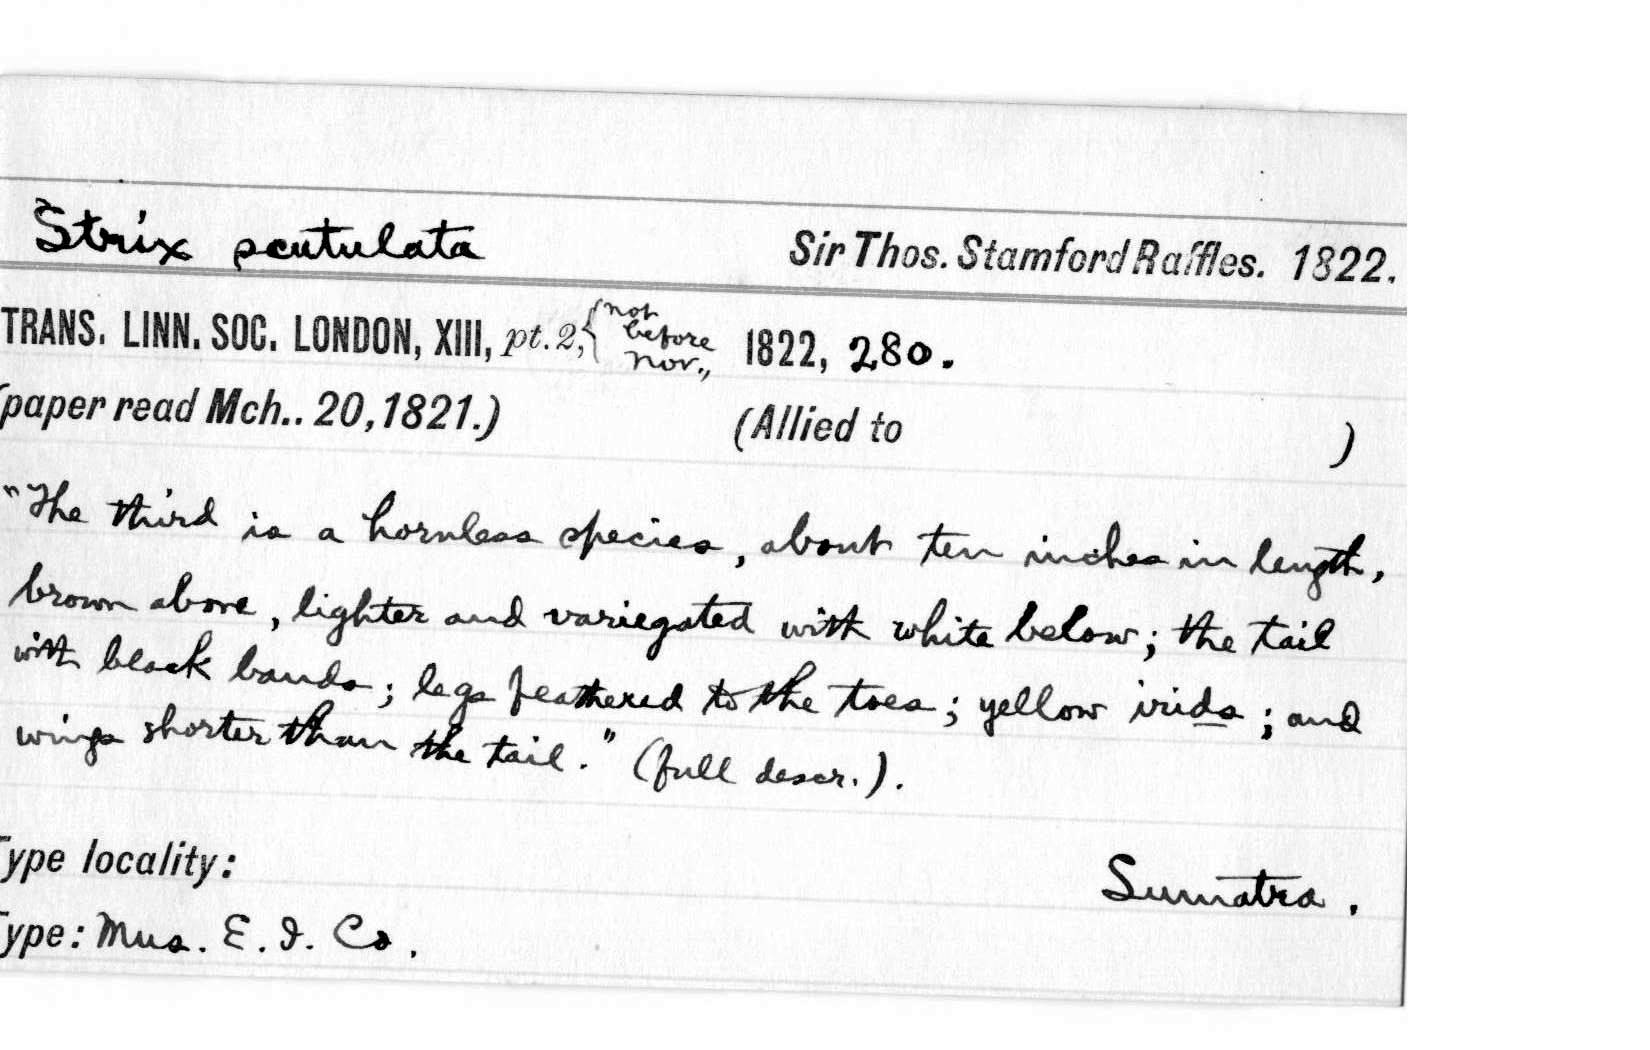 Strix scutulata Sir Thos. Stamford Raffles. 1822.
TRANS. LINN. SOC. LONDON, XIII, pt. 2, { not before Nov., 1822, 280.
(paper read Mch.. 20, 1821.) (Allied to )
"The third is a hornless species, about ten inches in length,
brown above, lighter and variegated with white below; the tail
with black bands; legs feathered to the toes; yellow irids; and
wings shorter than the tail." (full descr.).
Type locality: Sumatra.
Type: Mus. E. I. Co.